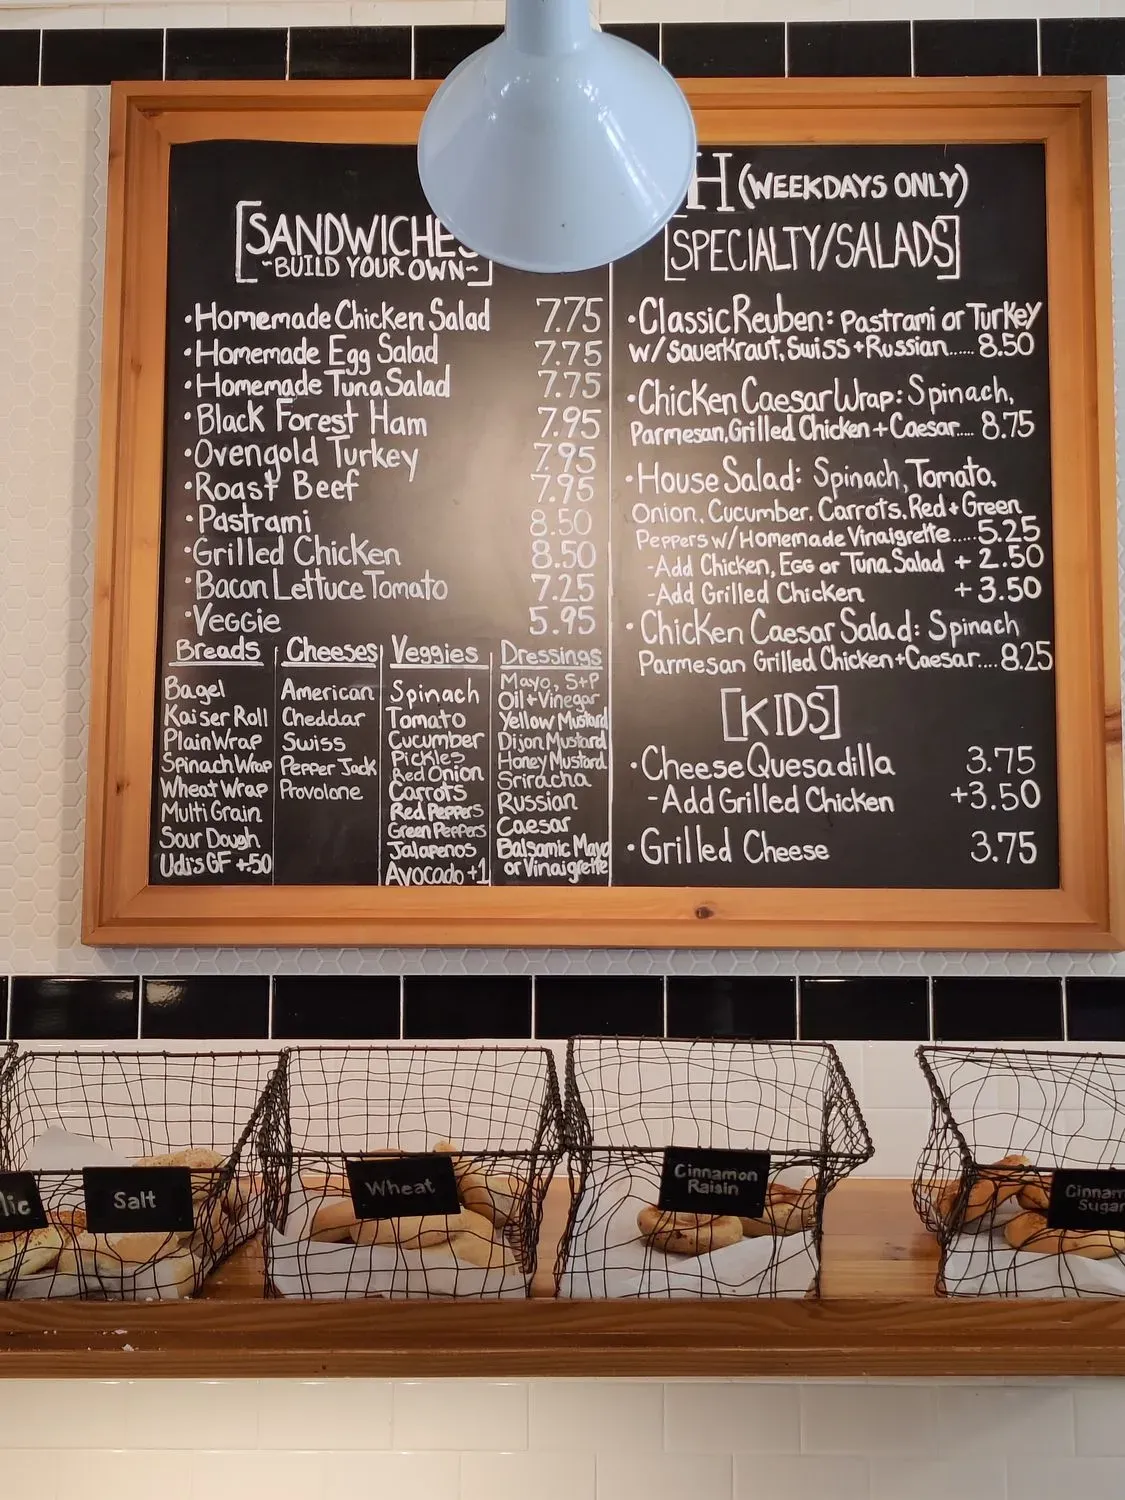 H (WEEKDAYS ONLY)
[SANDWICHES
~BUILD YOUR OWN~]
• Homemade Chicken Salad 7.75
• Homemade Egg Salad 7.75
• Homemade Tuna Salad 7.75
• Black Forest Ham 7.95
• Ovengold Turkey 7.95
• Roast Beef 7.95
• Pastrami 8.50
• Grilled Chicken 8.50
• Bacon Lettuce Tomato 7.25
• Veggie 5.95
Breads
Bagel
Kaiser Roll
Plain Wrap
Spinach Wrap
Wheat Wrap
Multi Grain
Sour Dough
Udi's GF +.50
Cheeses
American
Cheddar
Swiss
Pepper Jack
Provolone
Veggies
Spinach
Tomato
Cucumber
Pickles
Red Onion
Carrots
Red Peppers
Green Peppers
Jalapenos
Avocado +1
Dressings
Mayo, S+P
Oil + Vinegar
Yellow Mustard
Dijon Mustard
Honey Mustard
Sriracha
Russian
Caesar
Balsamic Mayo
or Vinaigrette
[SPECIALTY/SALADS]
• Classic Reuben: Pastrami or Turkey
w/ Sauerkraut, Swiss + Russian...... 8.50
• Chicken Caesar Wrap: Spinach,
Parmesan, Grilled Chicken + Caesar.... 8.75
• House Salad: Spinach, Tomato,
Onion, Cucumber, Carrots, Red + Green
Peppers w/ Homemade Vinaigrette..... 5.25
-Add Chicken, Egg or Tuna Salad + 2.50
-Add Grilled Chicken + 3.50
• Chicken Caesar Salad: Spinach
Parmesan Grilled Chicken + Caesar.... 8.25
[KIDS]
• Cheese Quesadilla 3.75
-Add Grilled Chicken +3.50
• Grilled Cheese 3.75
lic
Salt
Wheat
Cinnamon
Raisin
Cinnam
Sugar